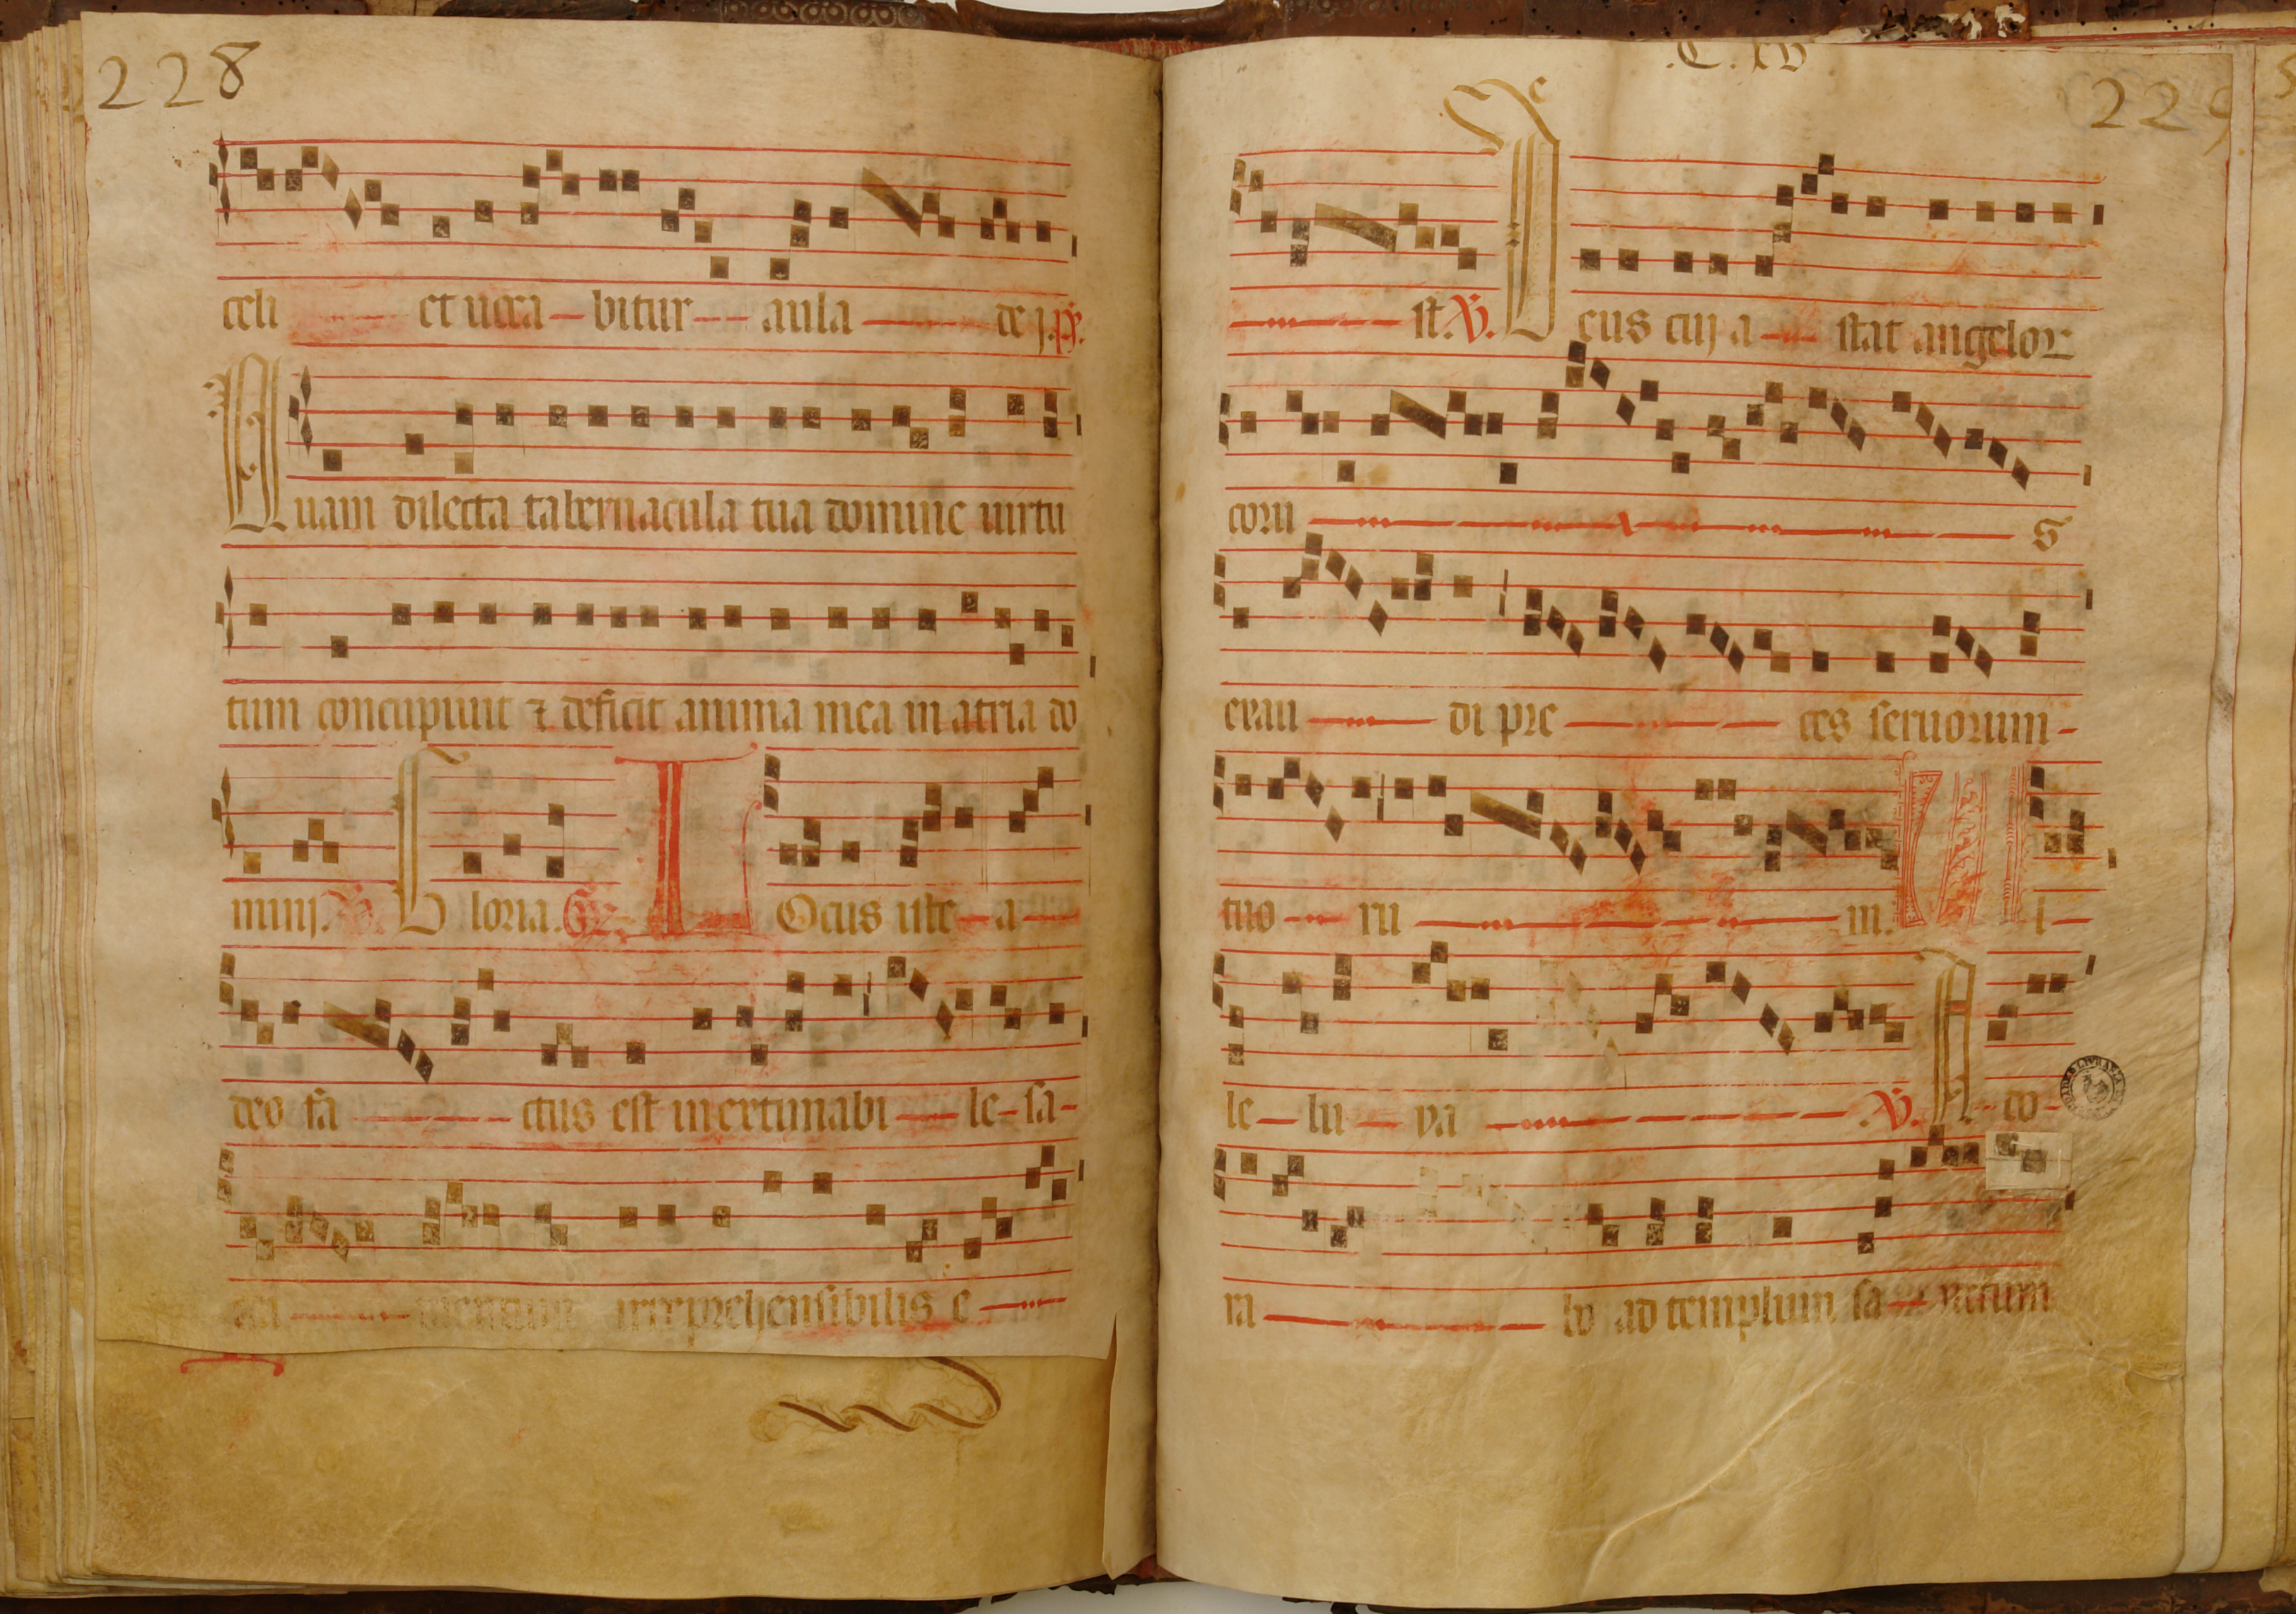 228
celi et uoca bitur aula dej. ps.
Quam dilecta tabernacula tua domine uirtu
tum concupiuit ⁊ deficit anima mea in atria do
minj. V. Gloria. Gr. Locus iste a
deo fa ctus est inextimabi le sa
cra mentum irreprehensibilis e
.C. xv
229
st. V. Deus cuj a stat angelor
coru s
exau di pre ces seruorum
tuo ru m. Al
le lu ya V. Ado
ra bo ad templum sa nctum